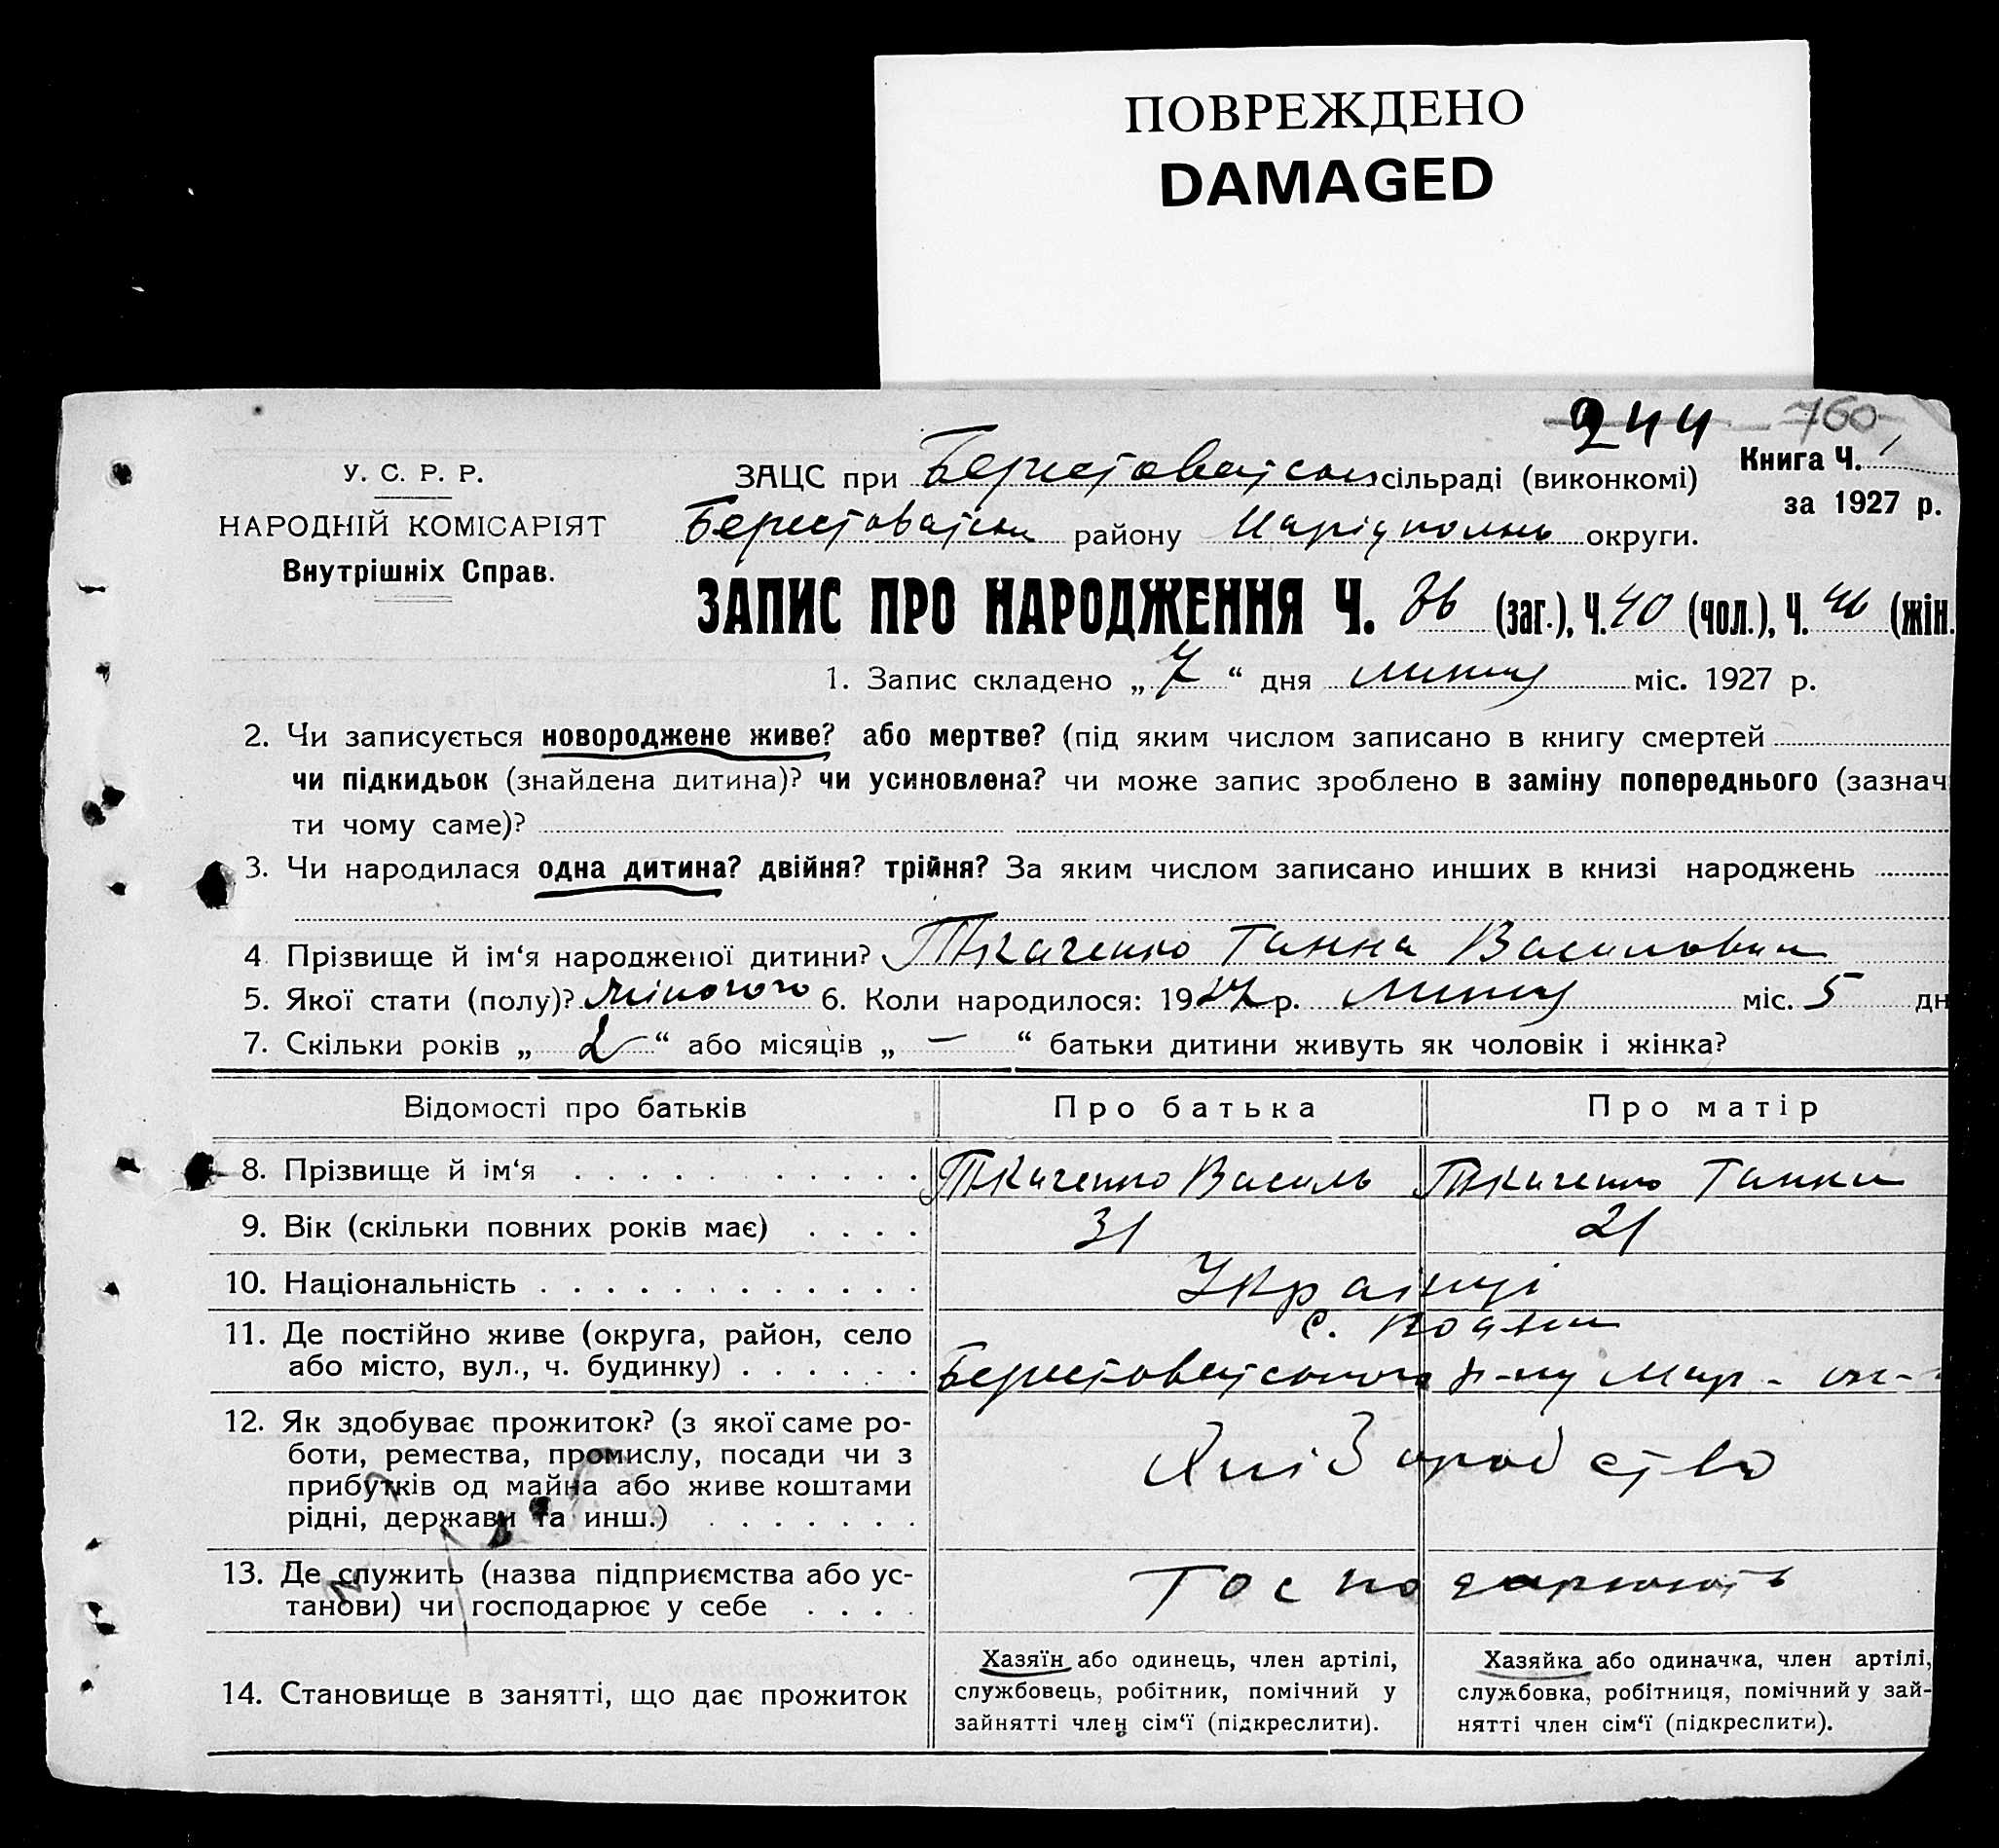 ПОВРЕЖДЕНО
DAMAGED
244 760
У. С. Р. Р.
НАРОДНІЙ КОМІСАРІЯТ
Внутрішніх Справ.
ЗАЦС при Берестоватськ сільраді (виконкомі)
Книга Ч. 1
за 1927 р.
Берестоватськ району Маріупольськ округи.
ЗАПИС ПРО НАРОДЖЕННЯ Ч. 86 (заг.), Ч. 40 (чол.), Ч. 46 (жін.
1. Запис складено „ 7 “ дня липня міс. 1927 р.
2. Чи записується новороджене живе? або мертве? (під яким числом записано в книгу смертей
чи підкидьок (знайдена дитина)? чи усиновлена? чи може запис зроблено в заміну попереднього (зазнач
ти чому саме)?
3. Чи народилася одна дитина? двійня? трійня? За яким числом записано инших в книзі народжень
4 Прізвище й ім‘я народженої дитини? Ткаченко Ганна Василовна
5. Якої стати (полу)? жіночого 6. Коли народилось: 1927 р. липня міс. 5 дн
7. Скільки років „ 2 “ або місяців „ — “ батьки дитини живуть як чоловік і жінка?
Відомості про батьків Про батька Про матір
8. Прізвище й ім‘я Ткаченко Василь Ткаченко Ганна
9. Вік (скільки повних років має) 31 21
10. Національність Українці
11. Де постійно живе (округа, район, село
або місто, вул., ч. будинку)
с.
Берестоватського р-ну Мар - ок-
12. Як здобуває прожиток? (з якої саме ро-
боти, ремества, промислу, посади чи з
прибутків од майна або живе коштами
рідні, держави та инш.)
Хліборобство
13. Де служить (назва підприємства або ус-
танови) чи господарює у себе
Господарюють
14. Становище в занятті, що дає прожиток
Хазяїн або одинець, член артілі,
службовець, робітник, помічний у
зайнятті член сім‘ї (підкреслити).
Хазяйка або одиначка, член артілі,
службовка, робітниця, помічний у зай-
нятті член сім‘ї (підкреслити).